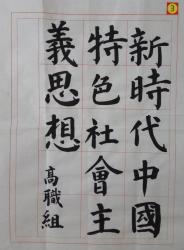 新時代中國
特色社會主
義思想
高職組
3